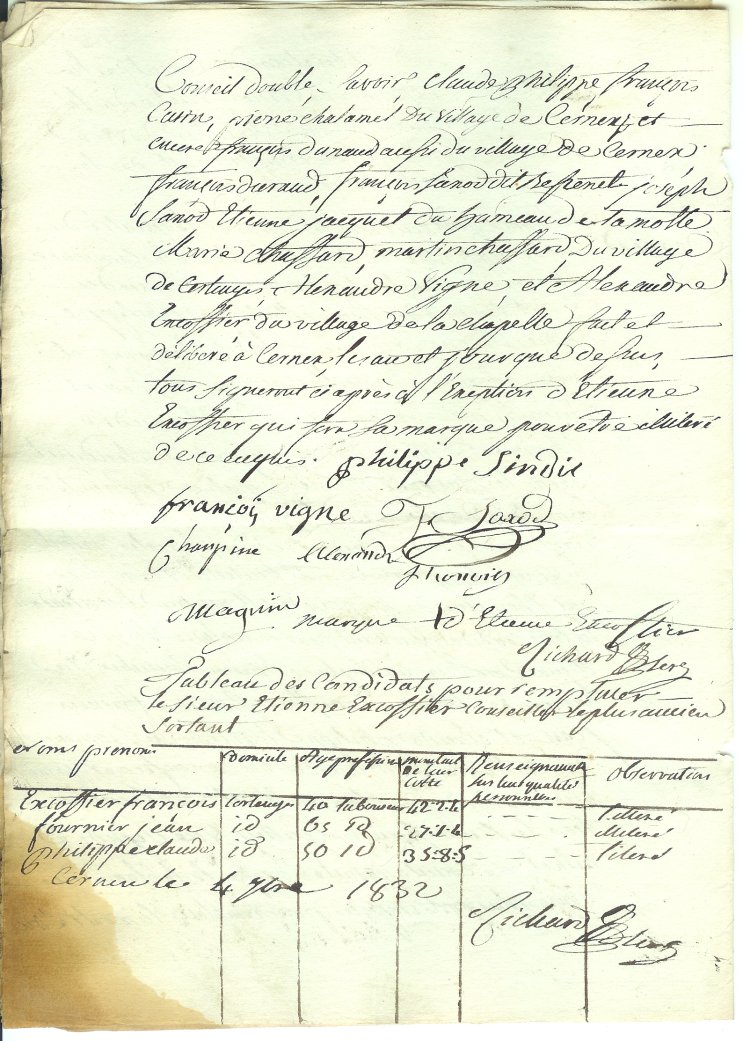 Conseil double. Savoir Claude Philippe françois
Carin, pierre chatamel du village de Cernex, et
encore françois dunand aussi du village de Cernex
françois duraud, françois Sanod dit Besrenet joseph
Sanod Etienne jacquet du hameau de Lamotte
Marie Chaffard martin chaffard du village
de Cortenges Alexandre Vigne et Alexandre
Excoffier du village de la chapelle fait et
délibéré à Cernex les an et jour que dessus,
tous signeront ci après à l'Exeption d'Etienne
Excoffier qui fera sa marque pour être illiteré
de ce enquis. philippe Sindic
francois vigne
Champine Alexandre
Magnin marque + d'Etienne Excoffier
Richard
Tableau des Candidats pour remplacer
le Sieur Etienne Excoffier Conseiller le plus ancien
Sortant
et noms prenoms domicile age profession montant de leur Cotte Renseignements sur leur qualités personnelles observation
Excoffier françois Cortenges 40 laboureur 42-2-4 - - - litteré
fournier jean id 65 id 27-1-4 - - - illiteré
philippe claude id 50 id 35-8-5 - - - litteré
Cernex le 4 7bre 1832
Richard